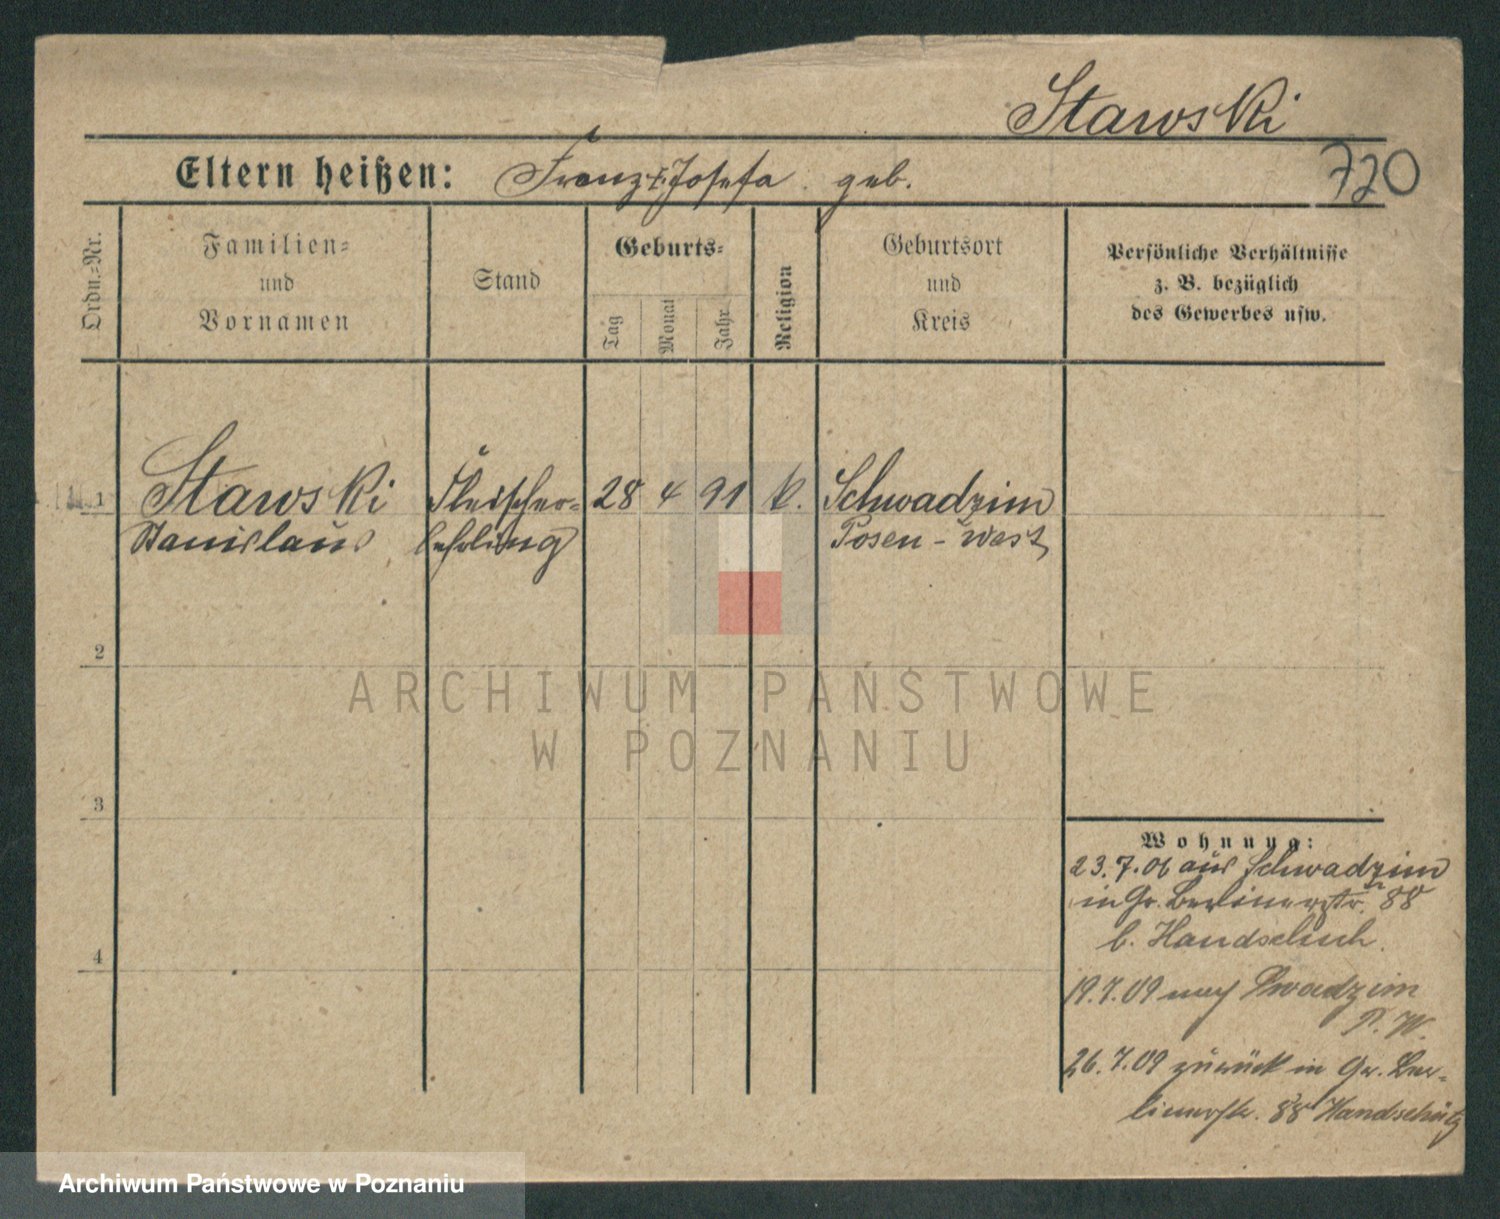 Stawski
720
Eltern heißen: Franz u. Josefa geb.
Ordn.=Nr.
Familien=
und
Vornamen
Stand
Geburts=
Tag
Monat
Jahr
Religion
Geburtsort
und
Kreis
Persönliche Verhältnisse
z. B. bezüglich
des Gewerbes usw.
1 Stawski Fleischer= 28 4 91 k. Schwadzim
Stanislaus lehrling Posen - West
2
3
4
Wohnung:
23.7.06 aus Schwadzim
in Gr. Berlinerstr. 88
b. Handschuh.
19.7.09 nach Swadzim
P. W.
26.7.09 zurück in Gr. Ber=
linerstr. 88 Handschütz
ARCHIWUM PAŃSTWOWE
W POZNANIU
Archiwum Państwowe w Poznaniu